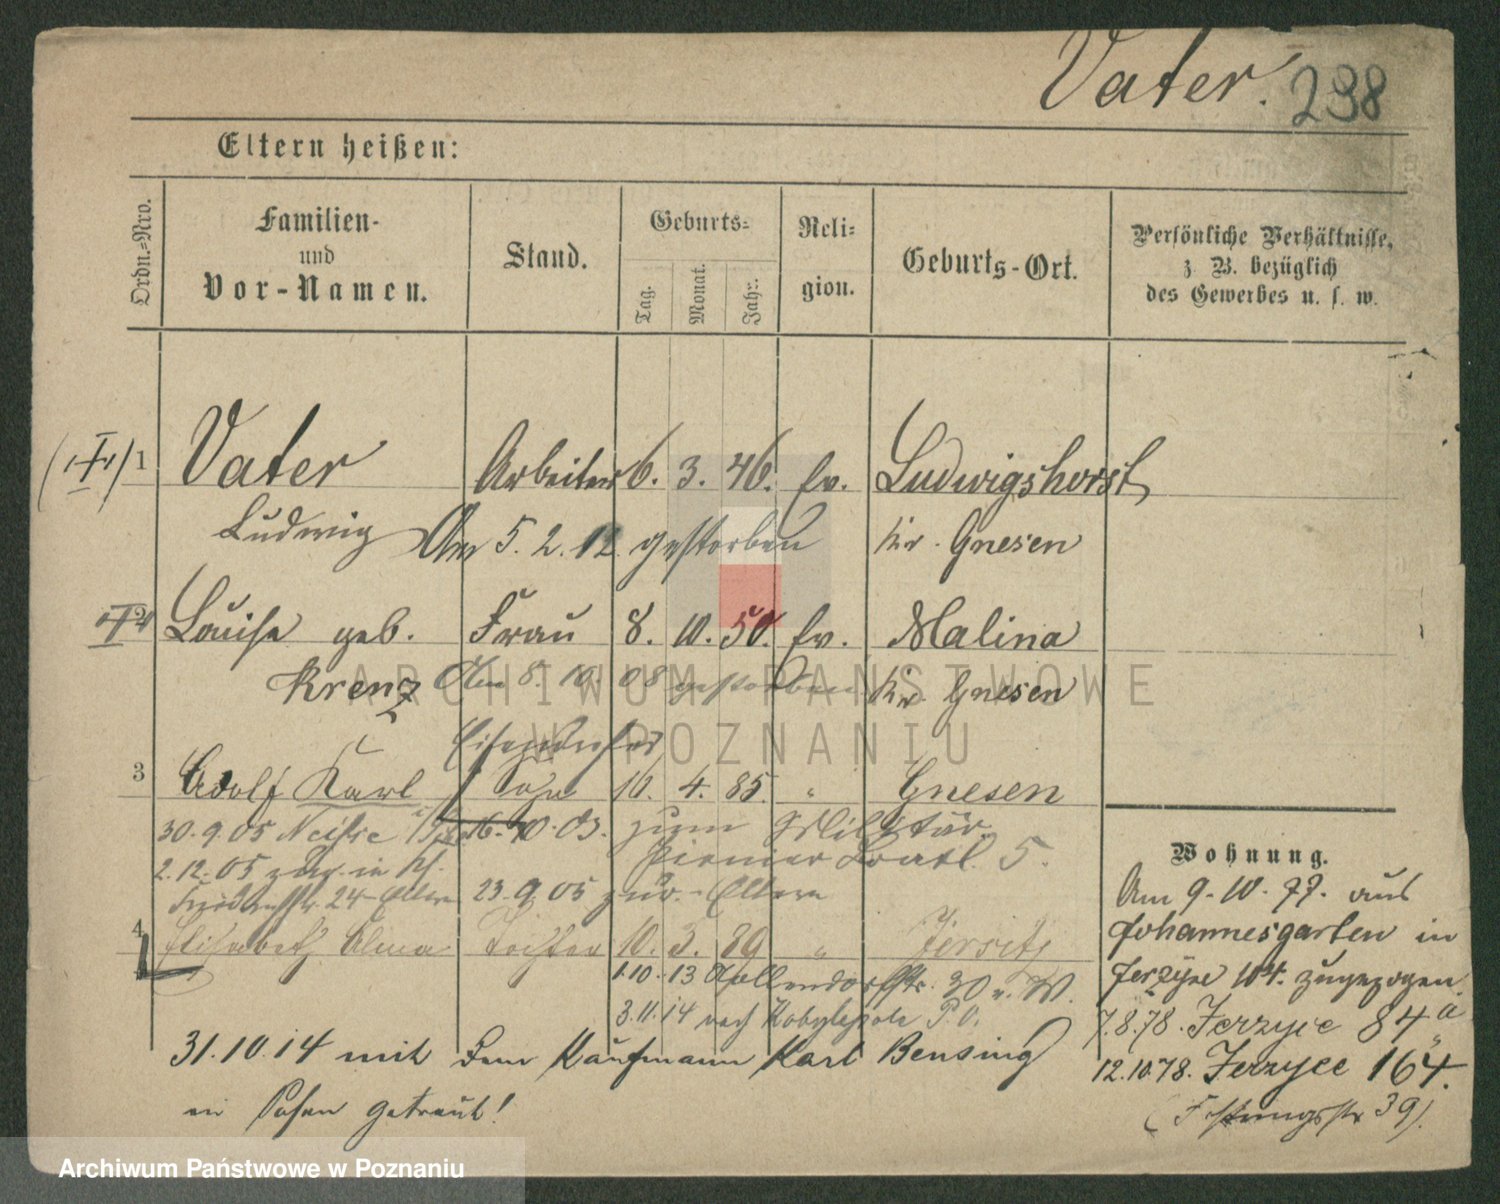 Vater. 238
Eltern heißen:
Ordn.-Nro.
Familien-
und
Vor-Namen.
Stand.
Geburts-
Tag.
Monat.
Jahr.
Reli-
gion.
Geburts-Ort.
Persönliche Verhältnisse,
z. B. bezüglich
des Gewerbes u. s. w.
1 Vater Arbeiter 6. 3. 46. Ev. Ludwigshorst
Ludwig Am 5. 2. 12. gestorben Kr. Gnesen
2 Louise geb. Frau 8. 10. 50. Ev. Malina
Krenz Am 8. 10. 08 gestorben Kr. Gnesen
Eisendreher
3 Adolf Karl Sohn 10. 4. 85. " Gnesen
30.9.05 Neisse 16.10.03. zum Militär
2.12.05 zug. in
Pionier Batl. 5.
24 Eltern 23.9.05 zur. Eltern
4 Elisabeth Alma Tochter 10. 3. 89 " Jersitz
1.10.13 Apellendorffstr. 30 n. W.
3.11.14 nach Kobylepole P. O.
31.10.14 mit dem Kaufmann Karl Bensing
in Posen getraut!
Wohnung.
Am 9.10.77. aus
Johannesgarten in
Jerzyce 104. zugezogen.
7.8.78. Jerzyce 84a
12.10.78. Jerzyce 164.
(Festungsstr 39).
ARCHIWUM PAŃSTWOWE
W POZNANIU
Archiwum Państwowe w Poznaniu